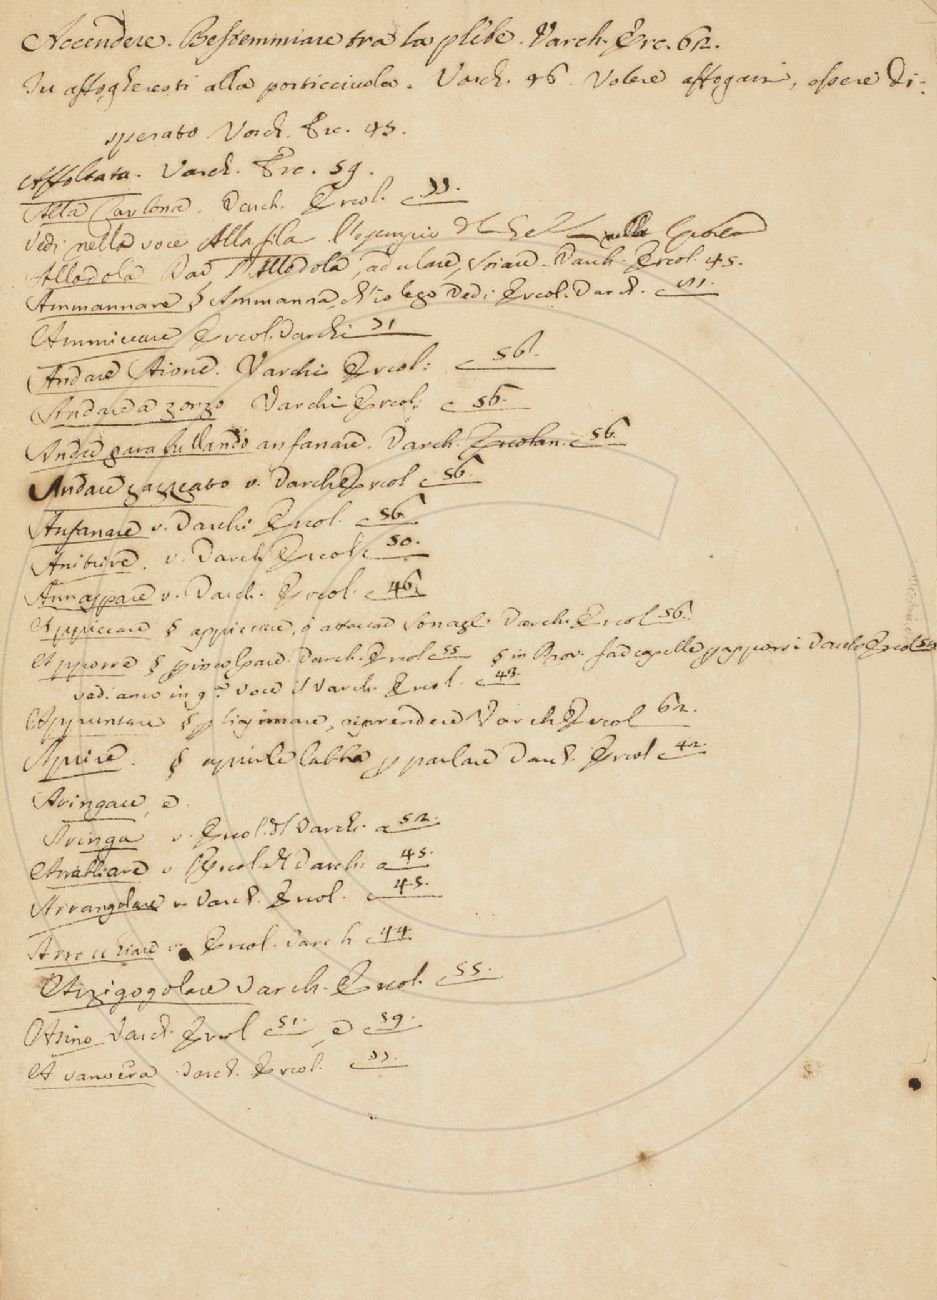 Accendere. Bestemmiare tra la plebe. Varch. Erc. 62.
Tu affogheresti alla porticciuola. Varch. 46 Volere affogare, essere di:
sperato Varch. Erc. 45.
Affoltata. Varch. Erc. 59.
Alla Carlona. Varch. Ercol. 33.
Vedi nella voce Alla fila l'esempio del nella
Allodola Dar l'Allodola, adulare, soiare. Varch. Ercol. 45.
Ammannare § Ammanna, ch'io lego Vedi Ercol. Varch. c.
Ammiccare Ercol. Varchi 71
Andare Aione. Varchi Ercol: c 56.
Andare a zonzo Varchi Ercol: c 56.
Andar garabullando anfanare. Varch. Ercolan. c 56
Andare zazzeato v. Varch Ercol c 56.
Anfanare v. Varchi Ercol. c 56.
Anitrire. v. Varch Ercol c 50.
Annaspare v. Varch. Ercol. c 46.
Appiccare § appiccare, o attaccar sonagl. Varch. Ercol 56.
Apporre § p incolpare. Varch. Ercol c 55 § in Prov. p apporsi Varch Ercol
vedi anco in q.ta voce il Varch. Ercol. c 43.
Appuntare § p biasimare, riprendere Varch Ercol 62.
Aprire. § aprir le labbra p parlare Varch. Ercol c 42.
Aringare, e
Aringa v. Ercol. del Varch. a 52.
Arrabbiare v l'Ercol. del Varch. a 45.
Arrangolare v. Varch. Ercol. c 45.
Arrocchiare v. Ercol. Varch c 44
Arzigogolare Varch. Ercol. c 55.
Asino Varch. Ercol c 51. e c 59.
A vanvera Varch. Ercol. c 33.